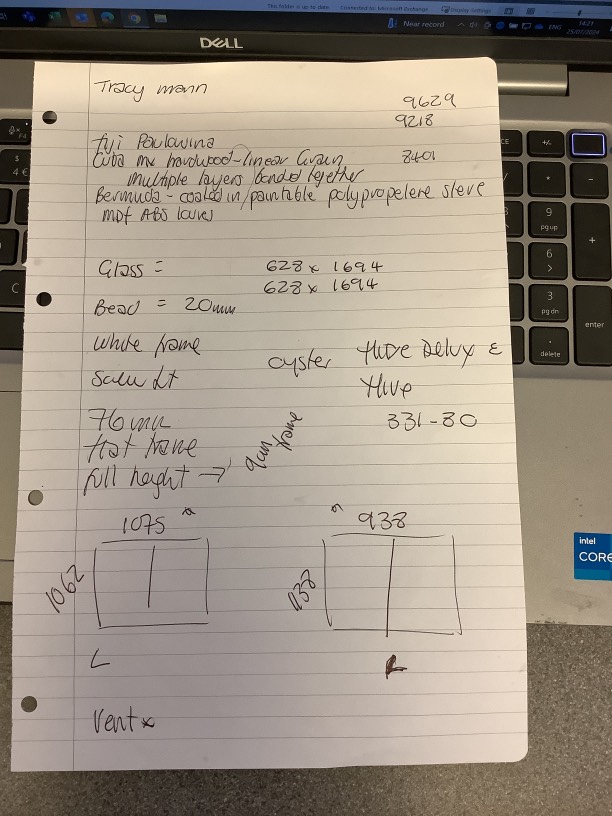 This file is up to date
Connected to: Microsoft Exchange
Display Settings
Near record
ENG
14:27
25/07/2024
DELL
Tracy mann
9629
9218
fiji Paulowina
Cuba mx hardwood-linear Grain
8401
multiple layers bonded together
Bermuda - coated in paintable polypropelene sleve
mdf ABS
Glass =
628 x 1694
628 x 1694
Bead = 20mm
White frame
oyster
Hive Delux &
Hive
76mm
331-80
flat frame
full height →
frame
1075
938
1062
1138
L
R
Vent x
$
4 €
C
+/-
*
-
9
pg up
+
6
>
3
pg dn
enter
.
delete
intel
CORE